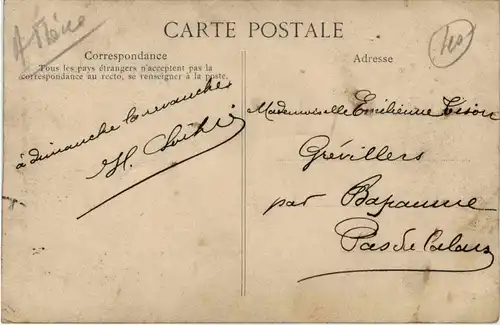 CARTE POSTALE
Correspondance
Tous les pays étrangers n'acceptent pas la
correspondance au recto, se renseigner à la poste.
à dimanche la revanche
H.
Adresse
Mademoiselle Emilienne Tison
Grévillers
par Bapaume
Pas de Calais